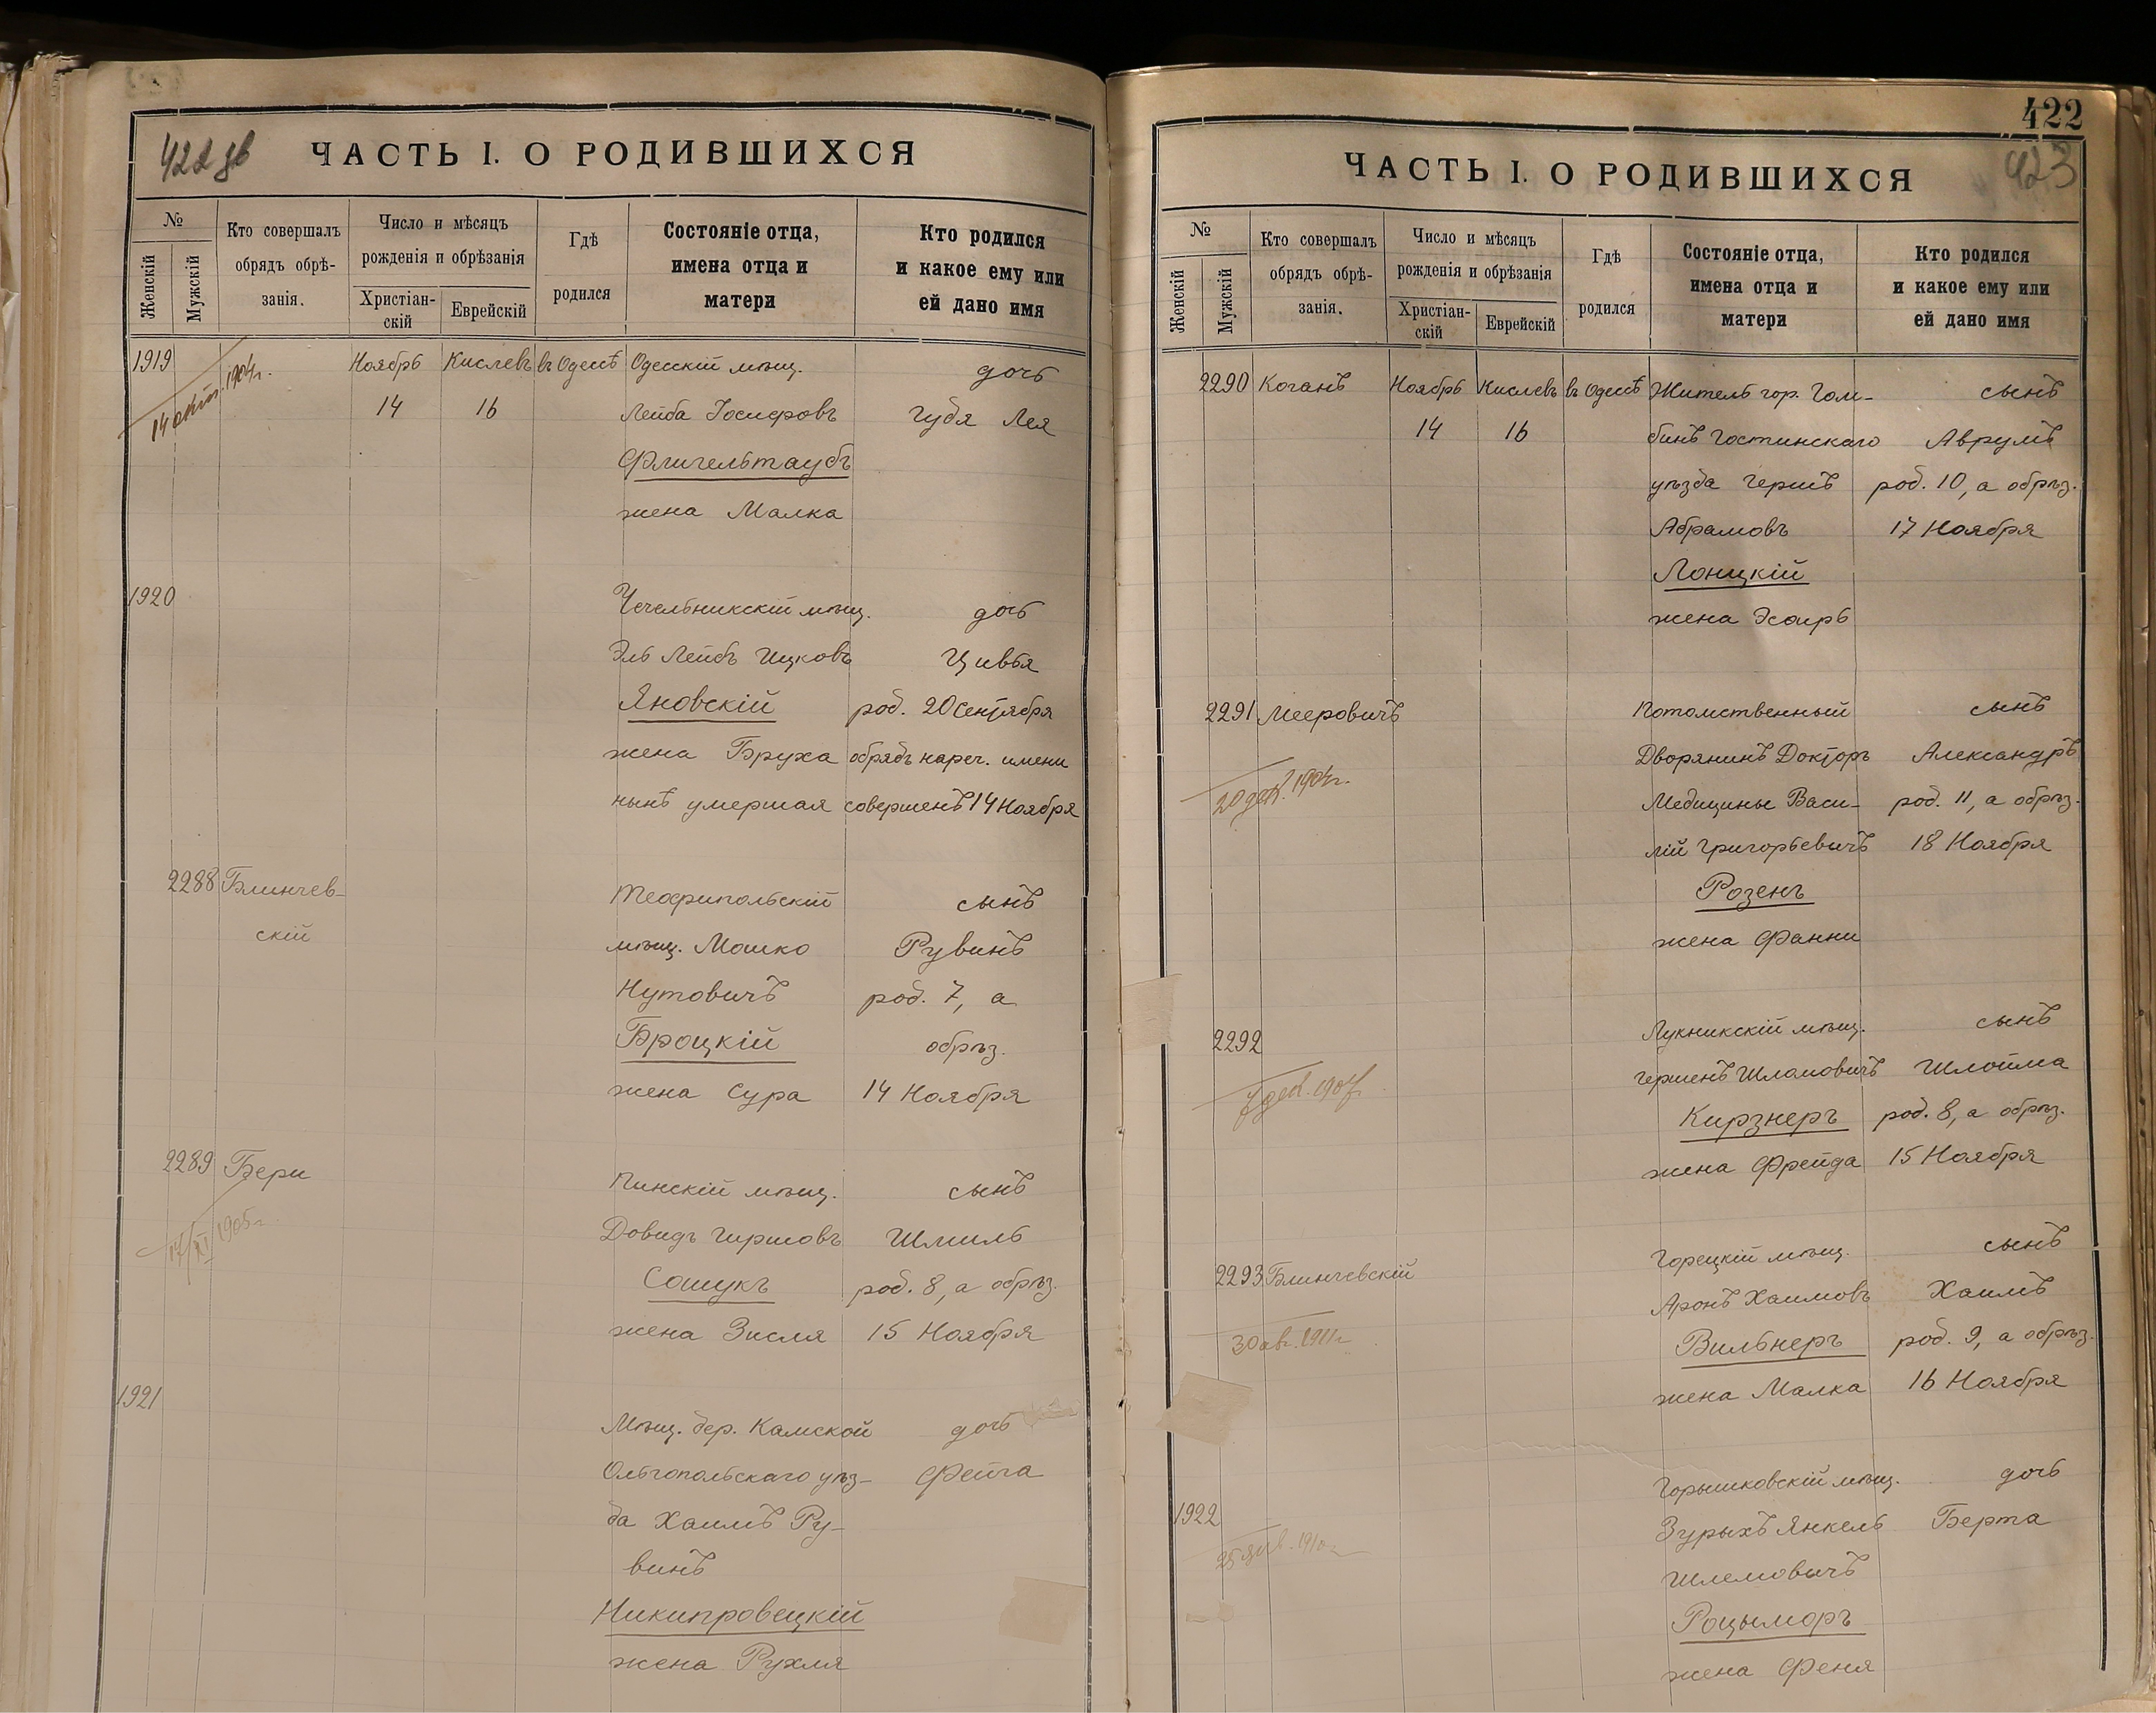 422 об
ЧАСТЬ I. О РОДИВШИХСЯ
№
Женскій
Мужскій
Кто совершалъ
обрядъ обрѣ-
занія.
Число и мѣсяцъ
рожденія и обрѣзанія
Христіан-
скій
Еврейскій
Гдѣ
родился
Состояніе отца,
имена отца и
матери
Кто родился
и какое ему или
ей дано имя
1919 Ноябрь Кислевъ въ Одессѣ Одесскій мѣщ. дочь
14 окт. 1904г.
14 16 Лейба Іосифовъ Гудя Лея
Флигельтаубъ
жена Малка
1920 Чечельникскій мѣщ. дочь
Эль Лейбъ Ицковъ Цивья
Яновскій род. 20 Сентября
жена Бруха обрядъ нареч. имени
нынѣ умершая совершенъ 14 Ноября
2288 Блинчев- Теофипольскій сынъ
скій мѣщ. Мошко Рувинъ
Нутовичъ род. 7, а
Броцкій обрѣз.
жена Сура 14 Ноября
2289 Бери Пинскій мѣщ. сынъ
17/XI 1905г.
Довидъ Гиршовъ Шмиль
Сошукъ род. 8, а обрѣз.
жена Зисля 15 Ноября
1921 Мѣщ. дер. Камской дочь
Ольгопольскаго уѣз- Фейга
да Хаимъ Ру-
винъ
Никипровецкій
жена Рухля
422
423
ЧАСТЬ I. О РОДИВШИХСЯ
№
Женскій
Мужскій
Кто совершалъ
обрядъ обрѣ-
занія.
Число и мѣсяцъ
рожденія и обрѣзанія
Христіан-
скій
Еврейскій
Гдѣ
родился
Состояніе отца,
имена отца и
матери
Кто родился
и какое ему или
ей дано имя
2290 Коганъ Ноябрь Кислевъ въ Одессѣ Житель гор. Гом- сынъ
14 16 бинъ Гостинскаго Аврумъ
уѣзда Гершъ род. 10, а обрѣз.
Абрамовъ 17 Ноября
Лонцкій
жена Эсѳирь
2291 Мееровичъ Потомственный сынъ
Дворянинъ Докторъ Александръ
20 дек. 1904г.
Медицины Васи- род. 11, а обрѣз.
лій Григорьевичъ 18 Ноября
Розенъ
жена Фанни
2292 Лукникскій мѣщ. сынъ
7 дек. 1904
Гершенъ Шломовичъ Шлойма
Кирзнеръ род. 8, а обрѣз.
жена Фрейда 15 Ноября
2293 Блинчевскій Горецкій мѣщ. сынъ
Аронъ Хаимовъ Хаимъ
30 авг. 1911г
Вильнеръ род. 9, а обрѣз.
жена Малка 16 Ноября
1922 Горышковскій мѣщ. дочь
Зурыхъ Янкель Берта
25 янв. 1910г
Шлемовичъ
Роцыморъ
жена Феня